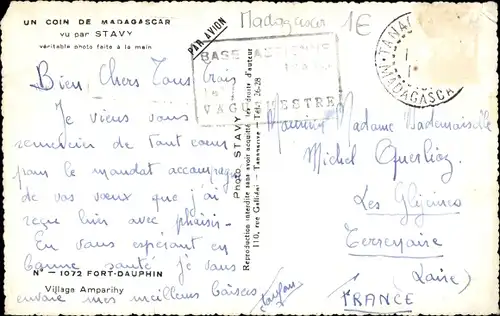 UN COIN DE MADAGASCAR
vu par STAVY
véritable photo faite à la main
PAR AVION
Madagascar
1€
BASE AERIENNE
VAGUEMESTRE
MADAGASCAR
Bien Chers Tous Trois
Je viens vous
remercier de tout coeur
pour le mandat accompagné
de vos voeux que j'ai
reçu hier avec plaisir.
En vous espérant en
bonne santé je vous
envoie mes meilleurs baisers
Photo STAVY
Reproduction interdite sans avoir acquitté les droits d'auteur
110, rue Galliéni - Tananarive - Tél. 26-28
Monsieur Madame Mademoiselle
Michel
Les Glycines
(Loire)
FRANCE
N° - 1072 FORT-DAUPHIN
Village Amparihy